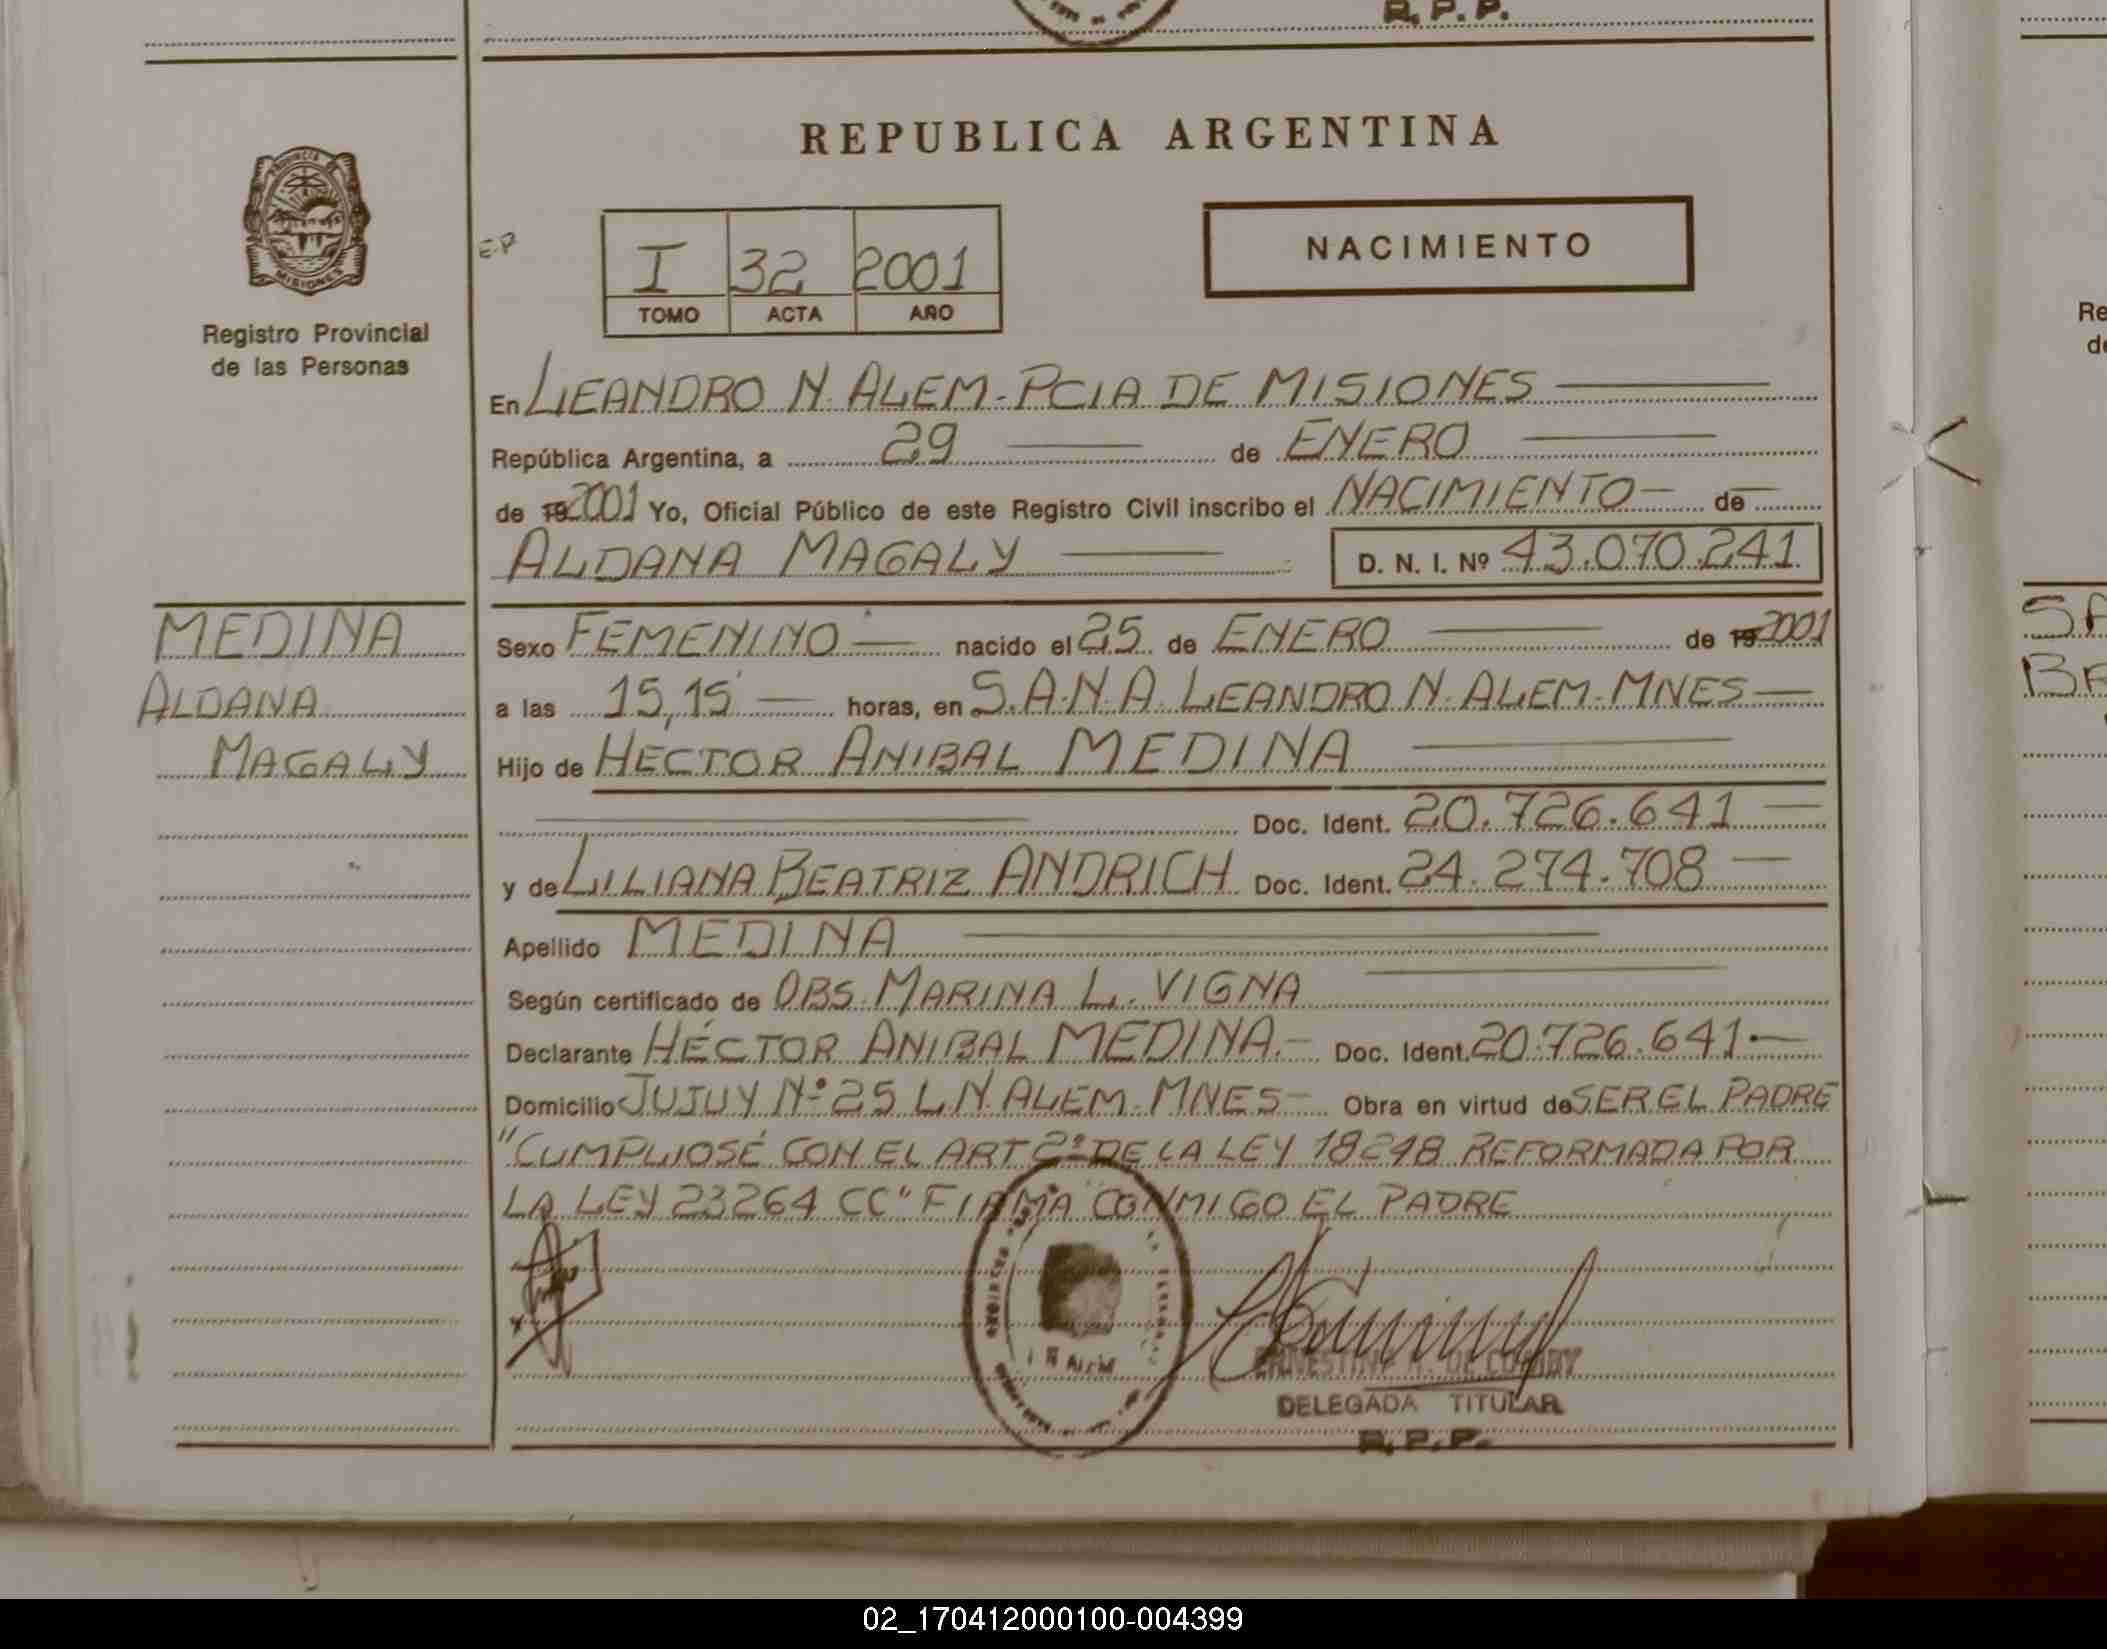 R. P. P.
REPUBLICA ARGENTINA
PROVINCIA DE
MISIONES
Registro Provincial
de las Personas
E.P
I 32 2001
TOMO ACTA AÑO
NACIMIENTO
En LEANDRO N. ALEM - PCIA DE MISIONES
República Argentina, a 29 de ENERO
de 19 2001 Yo, Oficial Público de este Registro Civil inscribo el NACIMIENTO - de
ALDANA MAGALY D. N. I. Nº 43.070.241
MEDINA
ALDANA
MAGALY
Sexo FEMENINO nacido el 25 de ENERO de 19 2001
a las 15,15 horas, en S.A.N.A. LEANDRO N. ALEM - MNES
Hijo de HECTOR ANIBAL MEDINA
Doc. Ident. 20.726.641
y de LILIANA BEATRIZ ANDRICH Doc. Ident. 24.274.708
Apellido MEDINA
Según certificado de OBS. MARINA L. VIGNA
Declarante HÉCTOR ANIBAL MEDINA.- Doc. Ident. 20.726.641.-
Domicilio JUJUY Nº 25 L.N. ALEM - MNES - Obra en virtud de SER EL PADRE
"CUMPLIOSÉ CON EL ART 2º DE LA LEY 18248 REFORMADA POR
LA LEY 23264 CC" FIRMA CONMIGO EL PADRE
DELEGADA TITULAR
R. P. P.
Re
de
SA
BA
02_170412000100-004399